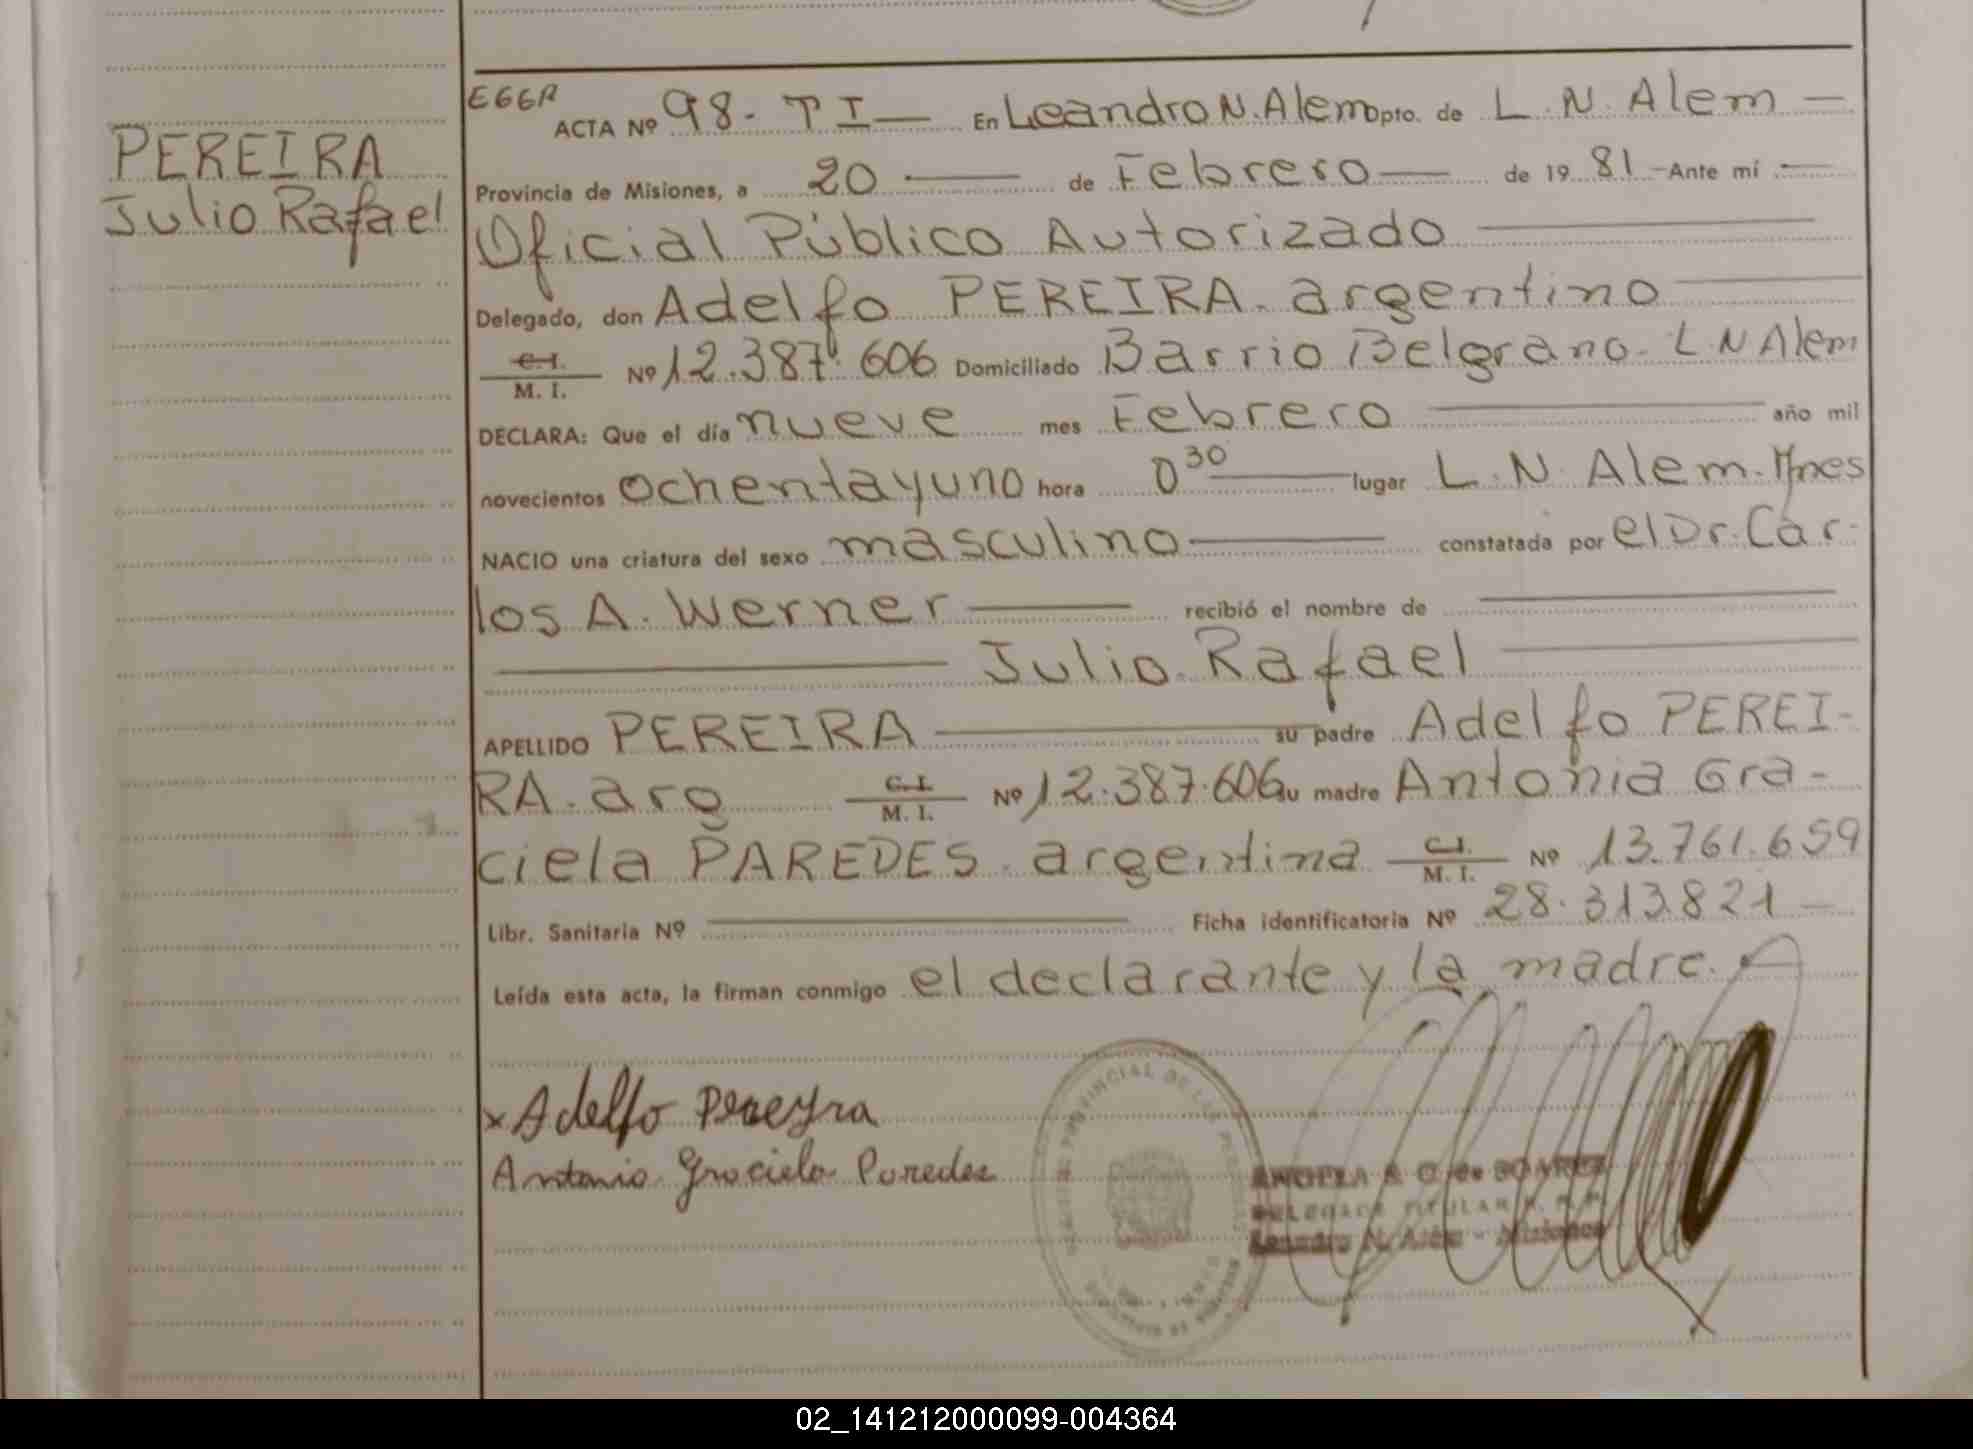 PEREIRA
Julio Rafael
EGGR
ACTA Nº 98- T I — En Leandro N. Alem Dpto. de L. N. Alem —
Provincia de Misiones, a 20 — de Febrero — de 19 81 - Ante mí —
Oficial Público Autorizado —
Delegado, don Adelfo PEREIRA. argentino —
C.I. / M. I. Nº 12.387.606 Domiciliado Barrio Belgrano. L N Alem
DECLARA: Que el día nueve mes Febrero — año mil
novecientos ochentayuno hora 0 30 — lugar L. N. Alem. Mnes
NACIO una criatura del sexo masculino — constatada por el Dr. Car-
los A. Werner — recibió el nombre de —
— Julio Rafael —
APELLIDO PEREIRA — su padre Adelfo PEREI-
RA. arg C.I. / M. I. Nº 12.387.606 su madre Antonia Gra-
ciela PAREDES. argentina C.I. / M. I. Nº 13.761.659
Libr. Sanitaria Nº — Ficha identificatoria Nº 28.313821 —
Leída esta acta, la firman conmigo el declarante y la madre.
x Adelfo Pereyra
Antonia Graciela Paredes
PROVINCIAL DE LAS
ANGELA S. G. de SOAREZ
DELEGADA TITULAR R. P.
Leandro N. Além - Misiones
02_141212000099-004364